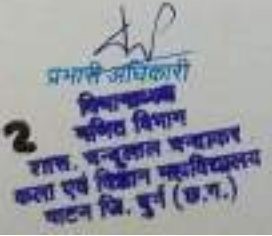 प्रभारी अधिकारी
विभागाध्यक्ष
2
गणित विभाग
शास. चन्दूलाल चन्द्राकर
कला एवं विज्ञान महाविद्यालय
पाटन जि. दुर्ग (छ.ग.)